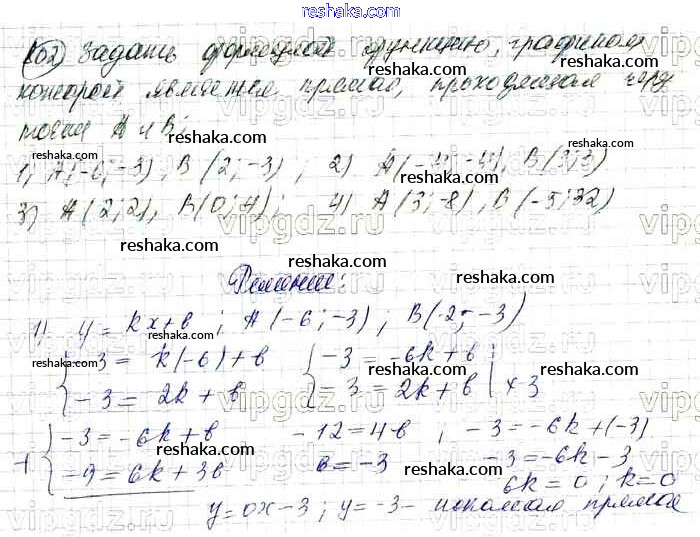 reshaka.com
102) Задать формулой функцию, графиком
которой является прямая, проходящая через
точки A и B:
1) A(-6; -3), B(2; -3), 2) A(-4; -4), B(3; 3)
3) A(2; 2), B(0; 4); 4) A(3; -8), B(-5; 32)
Решение:
1) y = kx+b; A(-6; -3); B(2; -3)
-3 = k(-6)+b -3 = -6k+b
-3 = 2k+b -3 = 2k+b | ×3
-3 = -6k+b -12 = 4b, -3 = -6k+(-3)
+ -9 = 6k+3b b = -3 -3 = -6k-3
6k = 0; k = 0
y = 0x-3; y = -3 - искомая прямая
reshaka.com